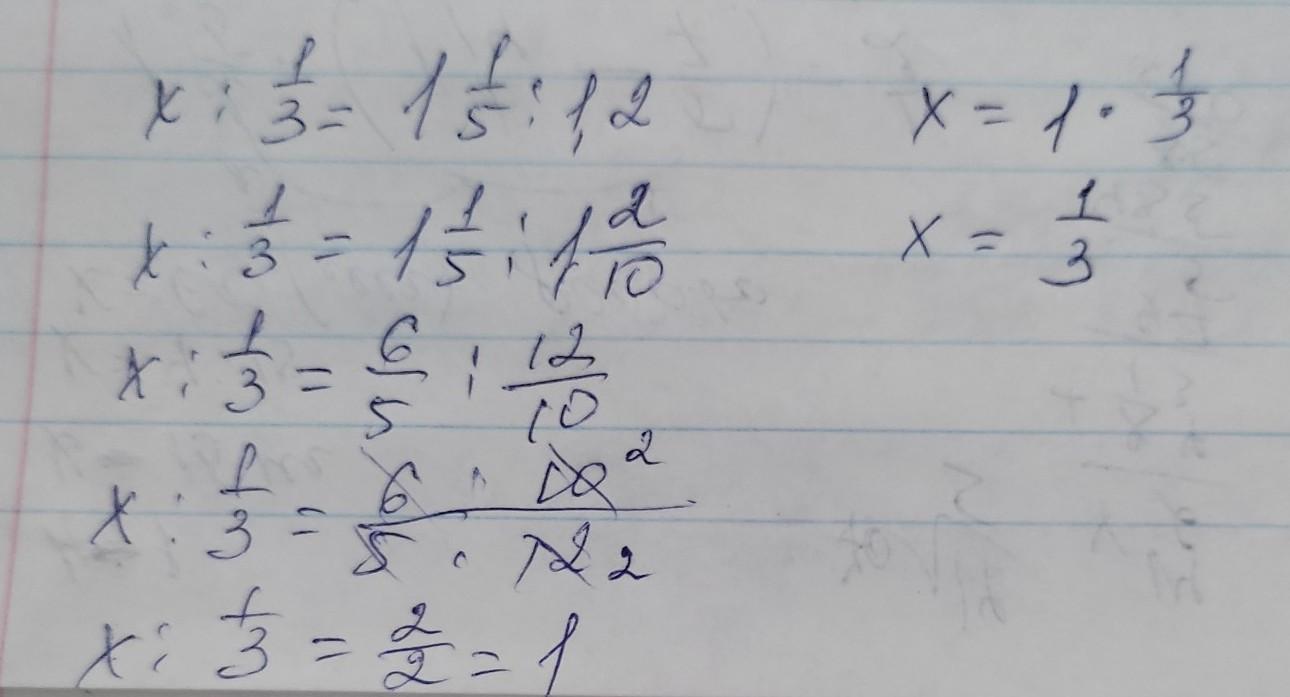 x : 1/3 = 1 1/5 : 1,2
x : 1/3 = 1 1/5 : 1 2/10
x : 1/3 = 6/5 : 12/10
x : 1/3 = (6 · 10 2)/(5 · 12 2)
x : 1/3 = 2/2 = 1
x = 1 · 1/3
x = 1/3